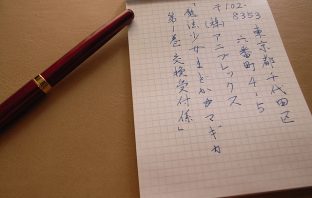 〒102-8353
東京都千代田区
六番町4-5
(株)アニプレックス
「魔法少女まどか☆マギカ
第1巻 交換受付係」